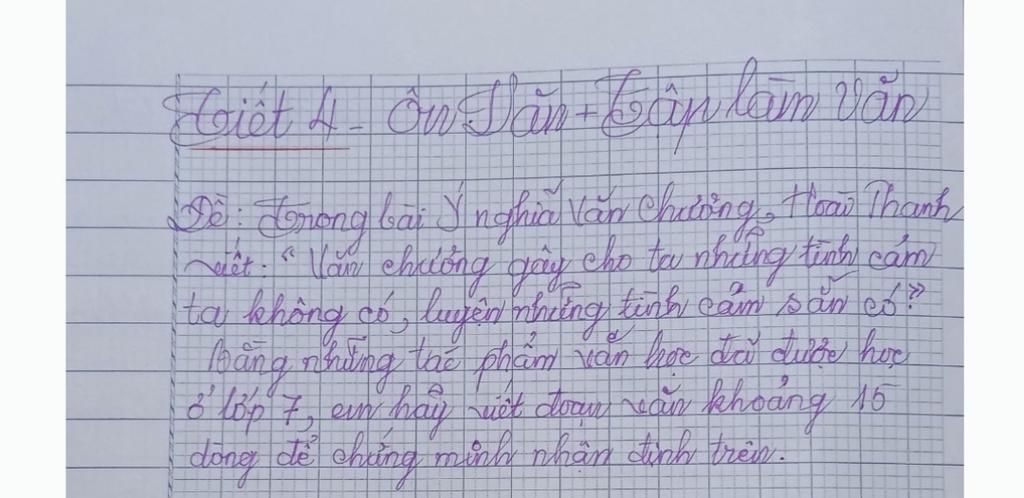 Tiết 4 - Ôn Văn + Tập làm văn
Đề: Trong bài Ý nghĩa văn chương, Hoài Thanh
viết: "Văn chương gây cho ta những tình cảm
ta không có, luyện những tình cảm sẵn có"
bằng những tác phẩm văn học đã được học
ở lớp 7, em hãy viết đoạn văn khoảng 15
dòng để chứng minh nhận định trên.